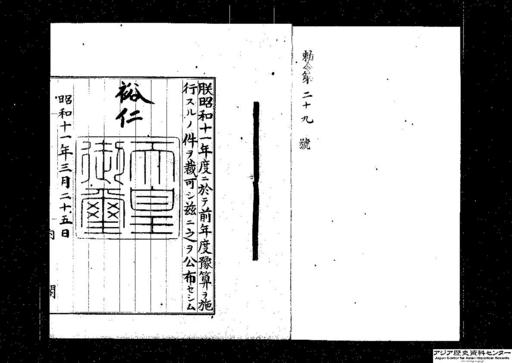 勅令第二十九號
朕昭和十一年度ニ於テ前年度豫算ヲ施
行スルノ件ヲ裁可シ茲ニ之ヲ公布セシム
裕仁
天皇
御璽
昭和十一年三月二十五日
内閣
アジア歴史資料センター
Japan Center for Asian Historical Records